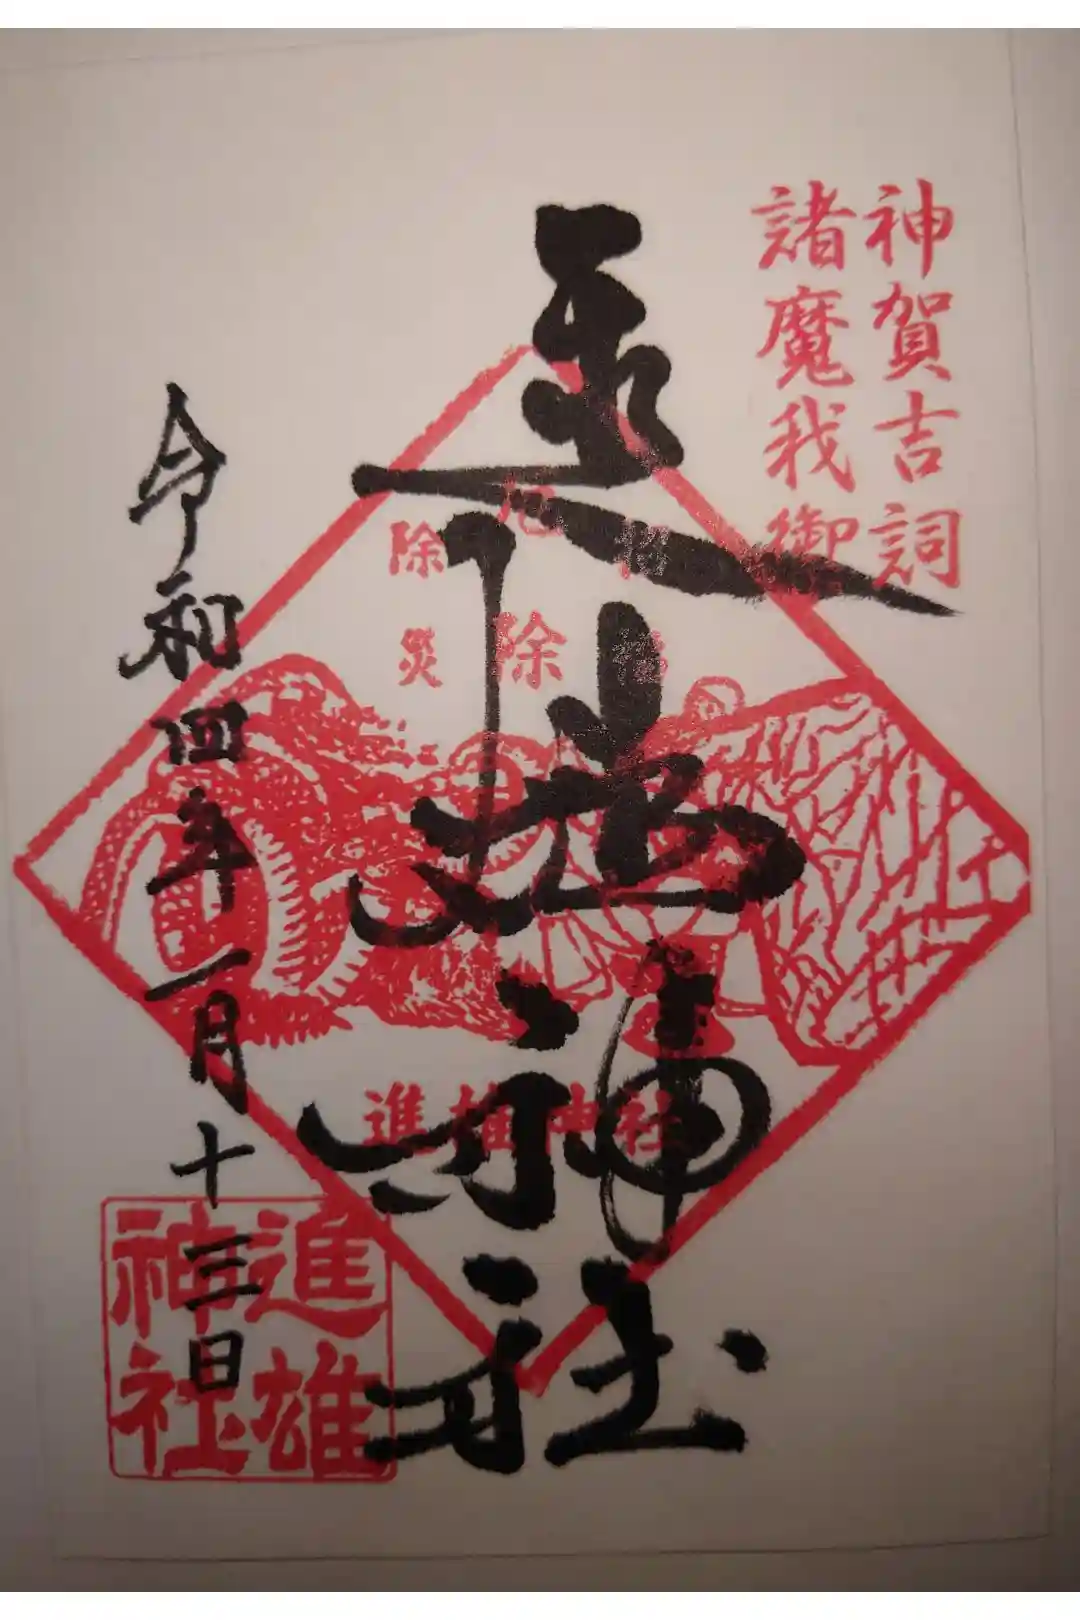 神賀吉詞
諸魔我御
招福
厄除
除災
神社
進雄神社
令和四年一月十三日
進雄
神社